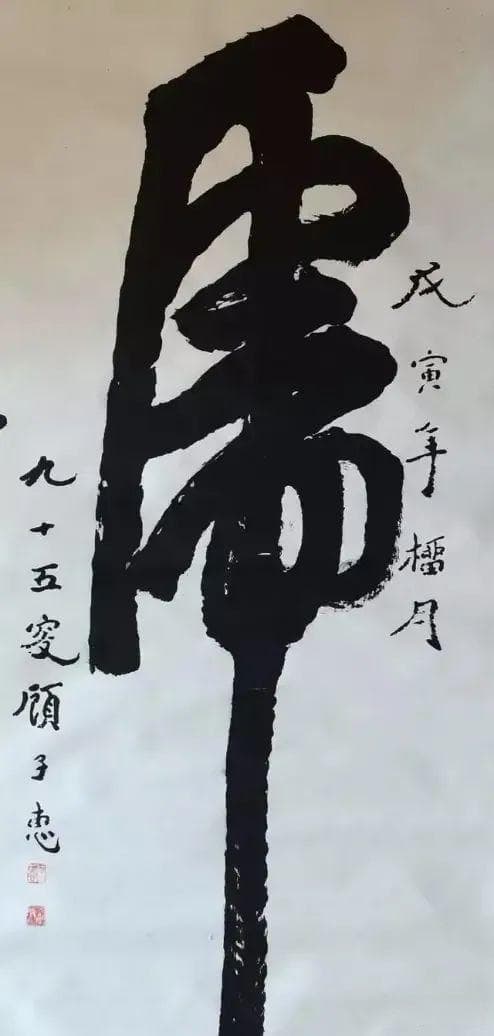 戊寅年榴月
虎
九十五叟顾子惠